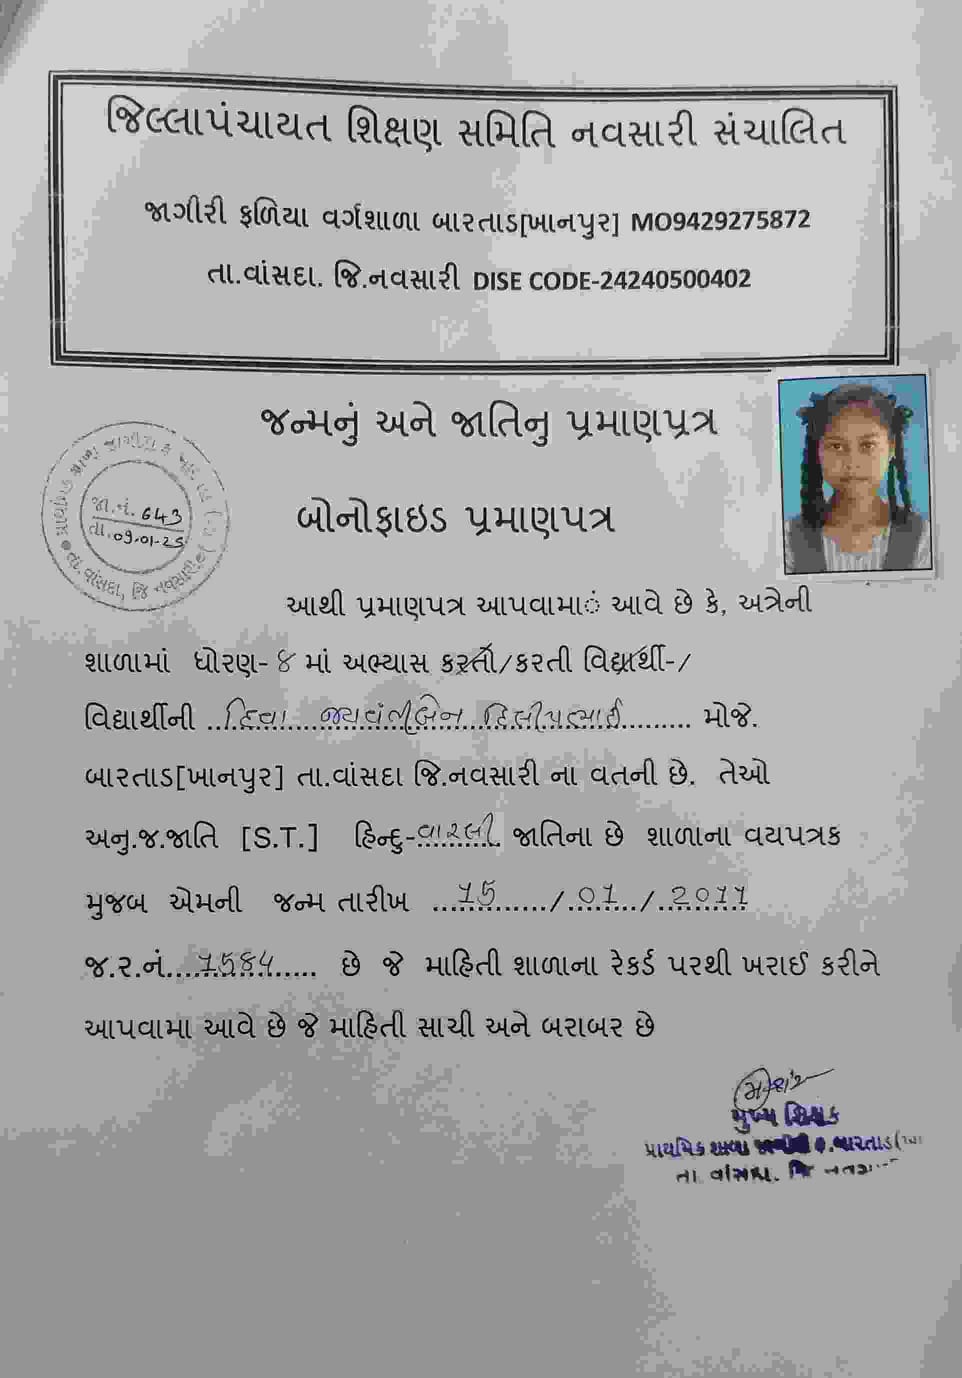 જિલ્લાપંચાયત શિક્ષણ સમિતિ નવસારી સંચાલિત
જાગીરી ફળિયા વર્ગશાળા બારતાડ[ખાનપુર] MO9429275872
તા.વાંસદા. જિ.નવસારી DISE CODE-24240500402
જન્મનું અને જાતિનુ પ્રમાણપત્ર
જા.નં. 643
તા.09-01-25
તા.વાંસદા, જિ નવસારી
બોનોફાઇડ પ્રમાણપત્ર
આથી પ્રમાણપત્ર આપવામાં આવે છે કે, અત્રેની
શાળામાં ધોરણ- 8 માં અભ્યાસ કરતો/કરતી વિદ્યાર્થી-/
વિદ્યાર્થીની ..દિવા જયવંતીબેન દિલીપભાઈ......... મોજે.
બારતાડ[ખાનપુર] તા.વાંસદા જિ.નવસારી ના વતની છે. તેઓ
અનુ.જ.જાતિ [S.T.] હિન્દુ-વારલી. જાતિના છે શાળાના વયપત્રક
મુજબ એમની જન્મ તારીખ ...15....../.01../..2011
જ.ર.નં....1584..... છે જે માહિતી શાળાના રેકર્ડ પરથી ખરાઈ કરીને
આપવામા આવે છે જે માહિતી સાચી અને બરાબર છે
મુખ્ય શિક્ષક
પ્રાથમિક શાળા ફ.બારતાડ(ખા
તા વાંસદા. જિ નવસા